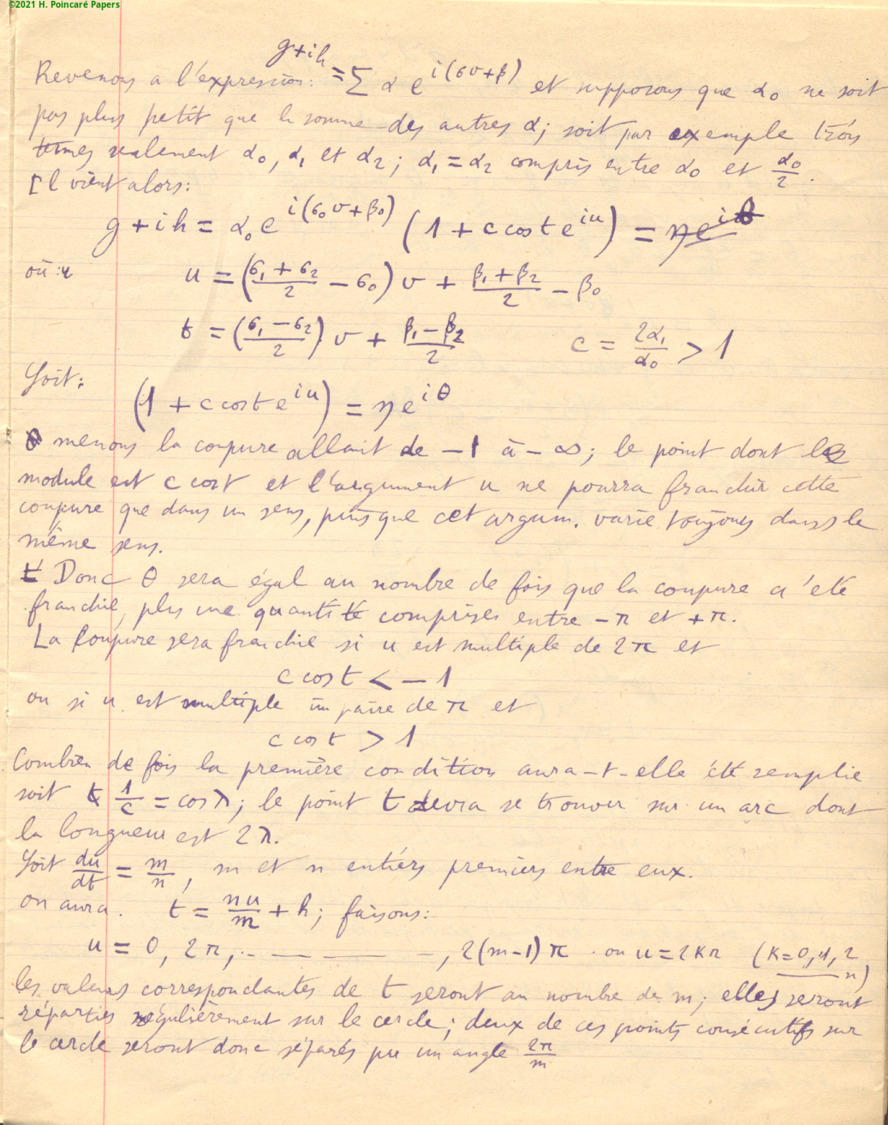 ©2021 H. Poincaré Papers
Revenons a l'expression: g+ih = Σ α e^{i(σv+β)} et supposons que α₀ ne soit
pas plus petit que la somme des autres α; soit par exemple trois
termes seulement α₀, α₁ et α₂; α₁ = α₂ compris entre α₀ et α₀/2.
Il vient alors:
g + ih = α₀ e^{i(σ₀v+β₀)} (1 + c cos t e^{iu}) = ηe^{iθ}
où: u = ((σ₁ + σ₂)/2 − σ₀) v + (β₁ + β₂)/2 − β₀
t = ((σ₁ − σ₂)/2) v + (β₁ − β₂)/2 c = 2α₁/α₀ > 1
Soit:
(1 + c cos t e^{iu}) = η e^{iθ}
menons la coupure allant de −1 à −∞; le point dont le
module est c cos t et l'argument u ne pourra franchir cette
coupure que dans un sens, puisque cet argum. varie toujours dans le
même sens.
Donc θ sera égal au nombre de fois que la coupure a été
franchie, plus une quantité comprises entre −π et +π.
La coupure sera franchie si u est multiple de 2π et
c cos t < −1
ou si u est multiple impaire de π et
c cos t > 1
Combien de fois la première condition aura-t-elle été remplie
soit 1/c = cos λ; le point t devra se trouver sur un arc dont
la longueur est 2λ.
Soit du/dt = m/n, m et n entiers premiers entre eux.
on aura. t = nu/m + h; faisons:
u = 0, 2π, . . — — — — , 2(m−1)π ou u = 2Kπ (K = 0, 1, 2 n)
les valeurs correspondantes de t seront au nombre de m; elles seront
réparties régulièrement sur le cercle; deux de ces points consécutifs sur
le cercle seront donc séparés par un angle 2π/m